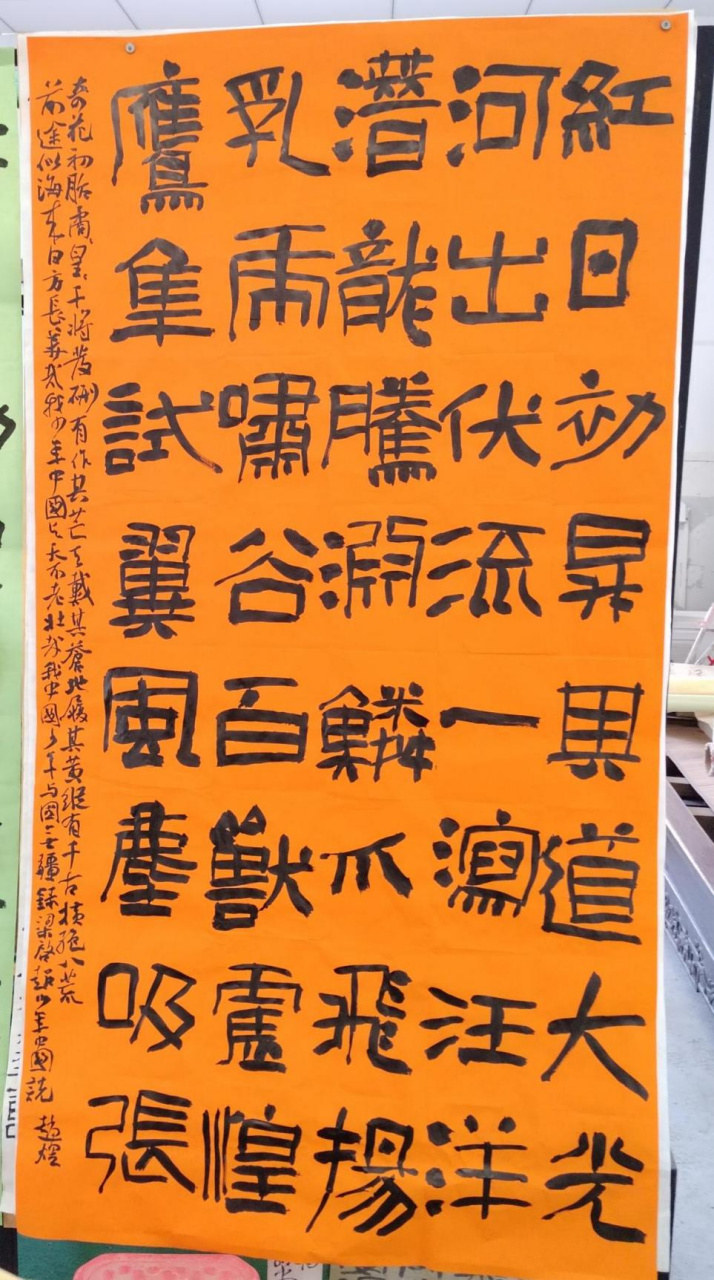 紅日初昇其道大光
河出伏流一瀉汪洋
潛龍騰淵鱗爪飛揚
乳虎嘯谷百獸震惶
鷹隼試翼風塵吸張
奇花初胎矞〻皇〻干將發硎有作其芒天戴其蒼地履其黃縱有千古橫絕八荒
前途似海來日方長美哉我少年中國与天不老壯哉我中國少年与國无疆錄梁啓超少年中國說 趙煜